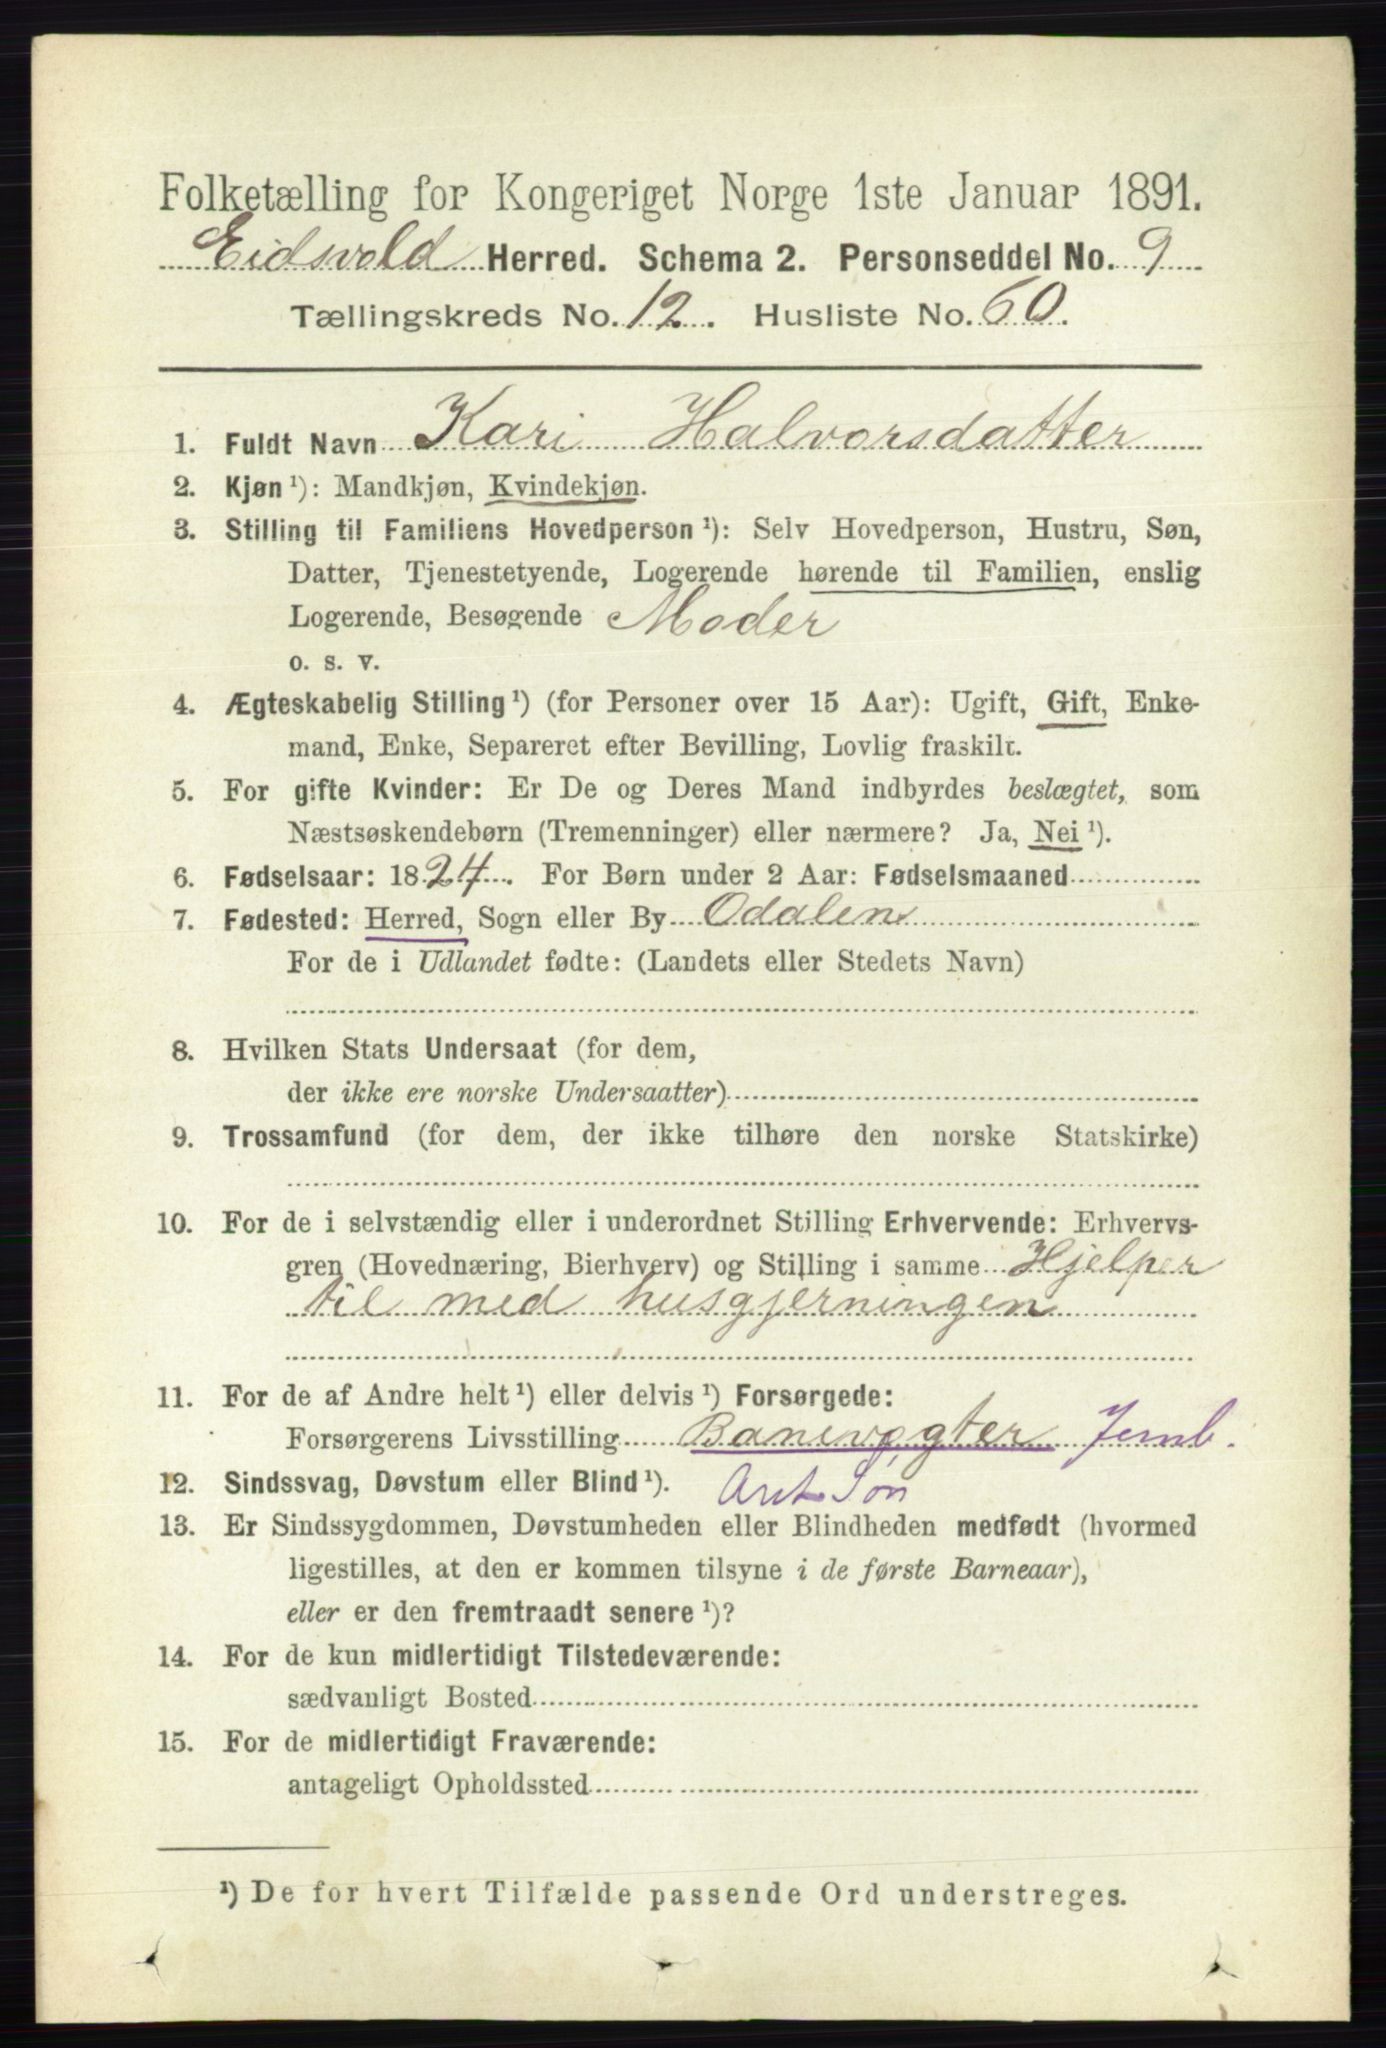 Folketælling for Kongeriget Norge 1ste Januar 1891.
Eidsvold Herred. Schema 2. Personseddel No. 9
Tællingskreds No. 12. Husliste No. 60.
1. Fuldt Navn Kari Halvorsdatter
2. Kjøn ¹): Mandkjøn, Kvindekjøn.
3. Stilling til Familiens Hovedperson ¹): Selv Hovedperson, Hustru, Søn,
Datter, Tjenestetyende, Logerende hørende til Familien, enslig
Logerende, Besøgende Moder
o. s. v.
4. Ægteskabelig Stilling ¹) (for Personer over 15 Aar): Ugift, Gift, Enke-
mand, Enke, Separeret efter Bevilling, Lovlig fraskilt.
5. For gifte Kvinder: Er De og Deres Mand indbyrdes beslægtet, som
Næstsøskendebørn (Tremenninger) eller nærmere? Ja, Nei ¹).
6. Fødselsaar: 1824. For Børn under 2 Aar: Fødselsmaaned
7. Fødested: Herred, Sogn eller By Odalen
For de i Udlandet fødte: (Landets eller Stedets Navn)
8. Hvilken Stats Undersaat (for dem,
der ikke ere norske Undersaatter)
9. Trossamfund (for dem, der ikke tilhøre den norske Statskirke)
10. For de i selvstændig eller i underordnet Stilling Erhvervende: Erhvervs-
gren (Hovednæring, Bierhverv) og Stilling i samme Hjelper
til med husgjerningen
11. For de af Andre helt ¹) eller delvis ¹) Forsørgede:
Forsørgerens Livsstilling Banevogter Jernb.
12. Sindssvag, Døvstum eller Blind ¹). Søn
13. Er Sindssygdommen, Døvstumheden eller Blindheden medfødt (hvormed
ligestilles, at den er kommen tilsyne i de første Barneaar),
eller er den fremtraadt senere ¹)?
14. For de kun midlertidigt Tilstedeværende:
sædvanligt Bosted
15. For de midlertidigt Fraværende:
antageligt Opholdssted
¹) De for hvert Tilfælde passende Ord understreges.